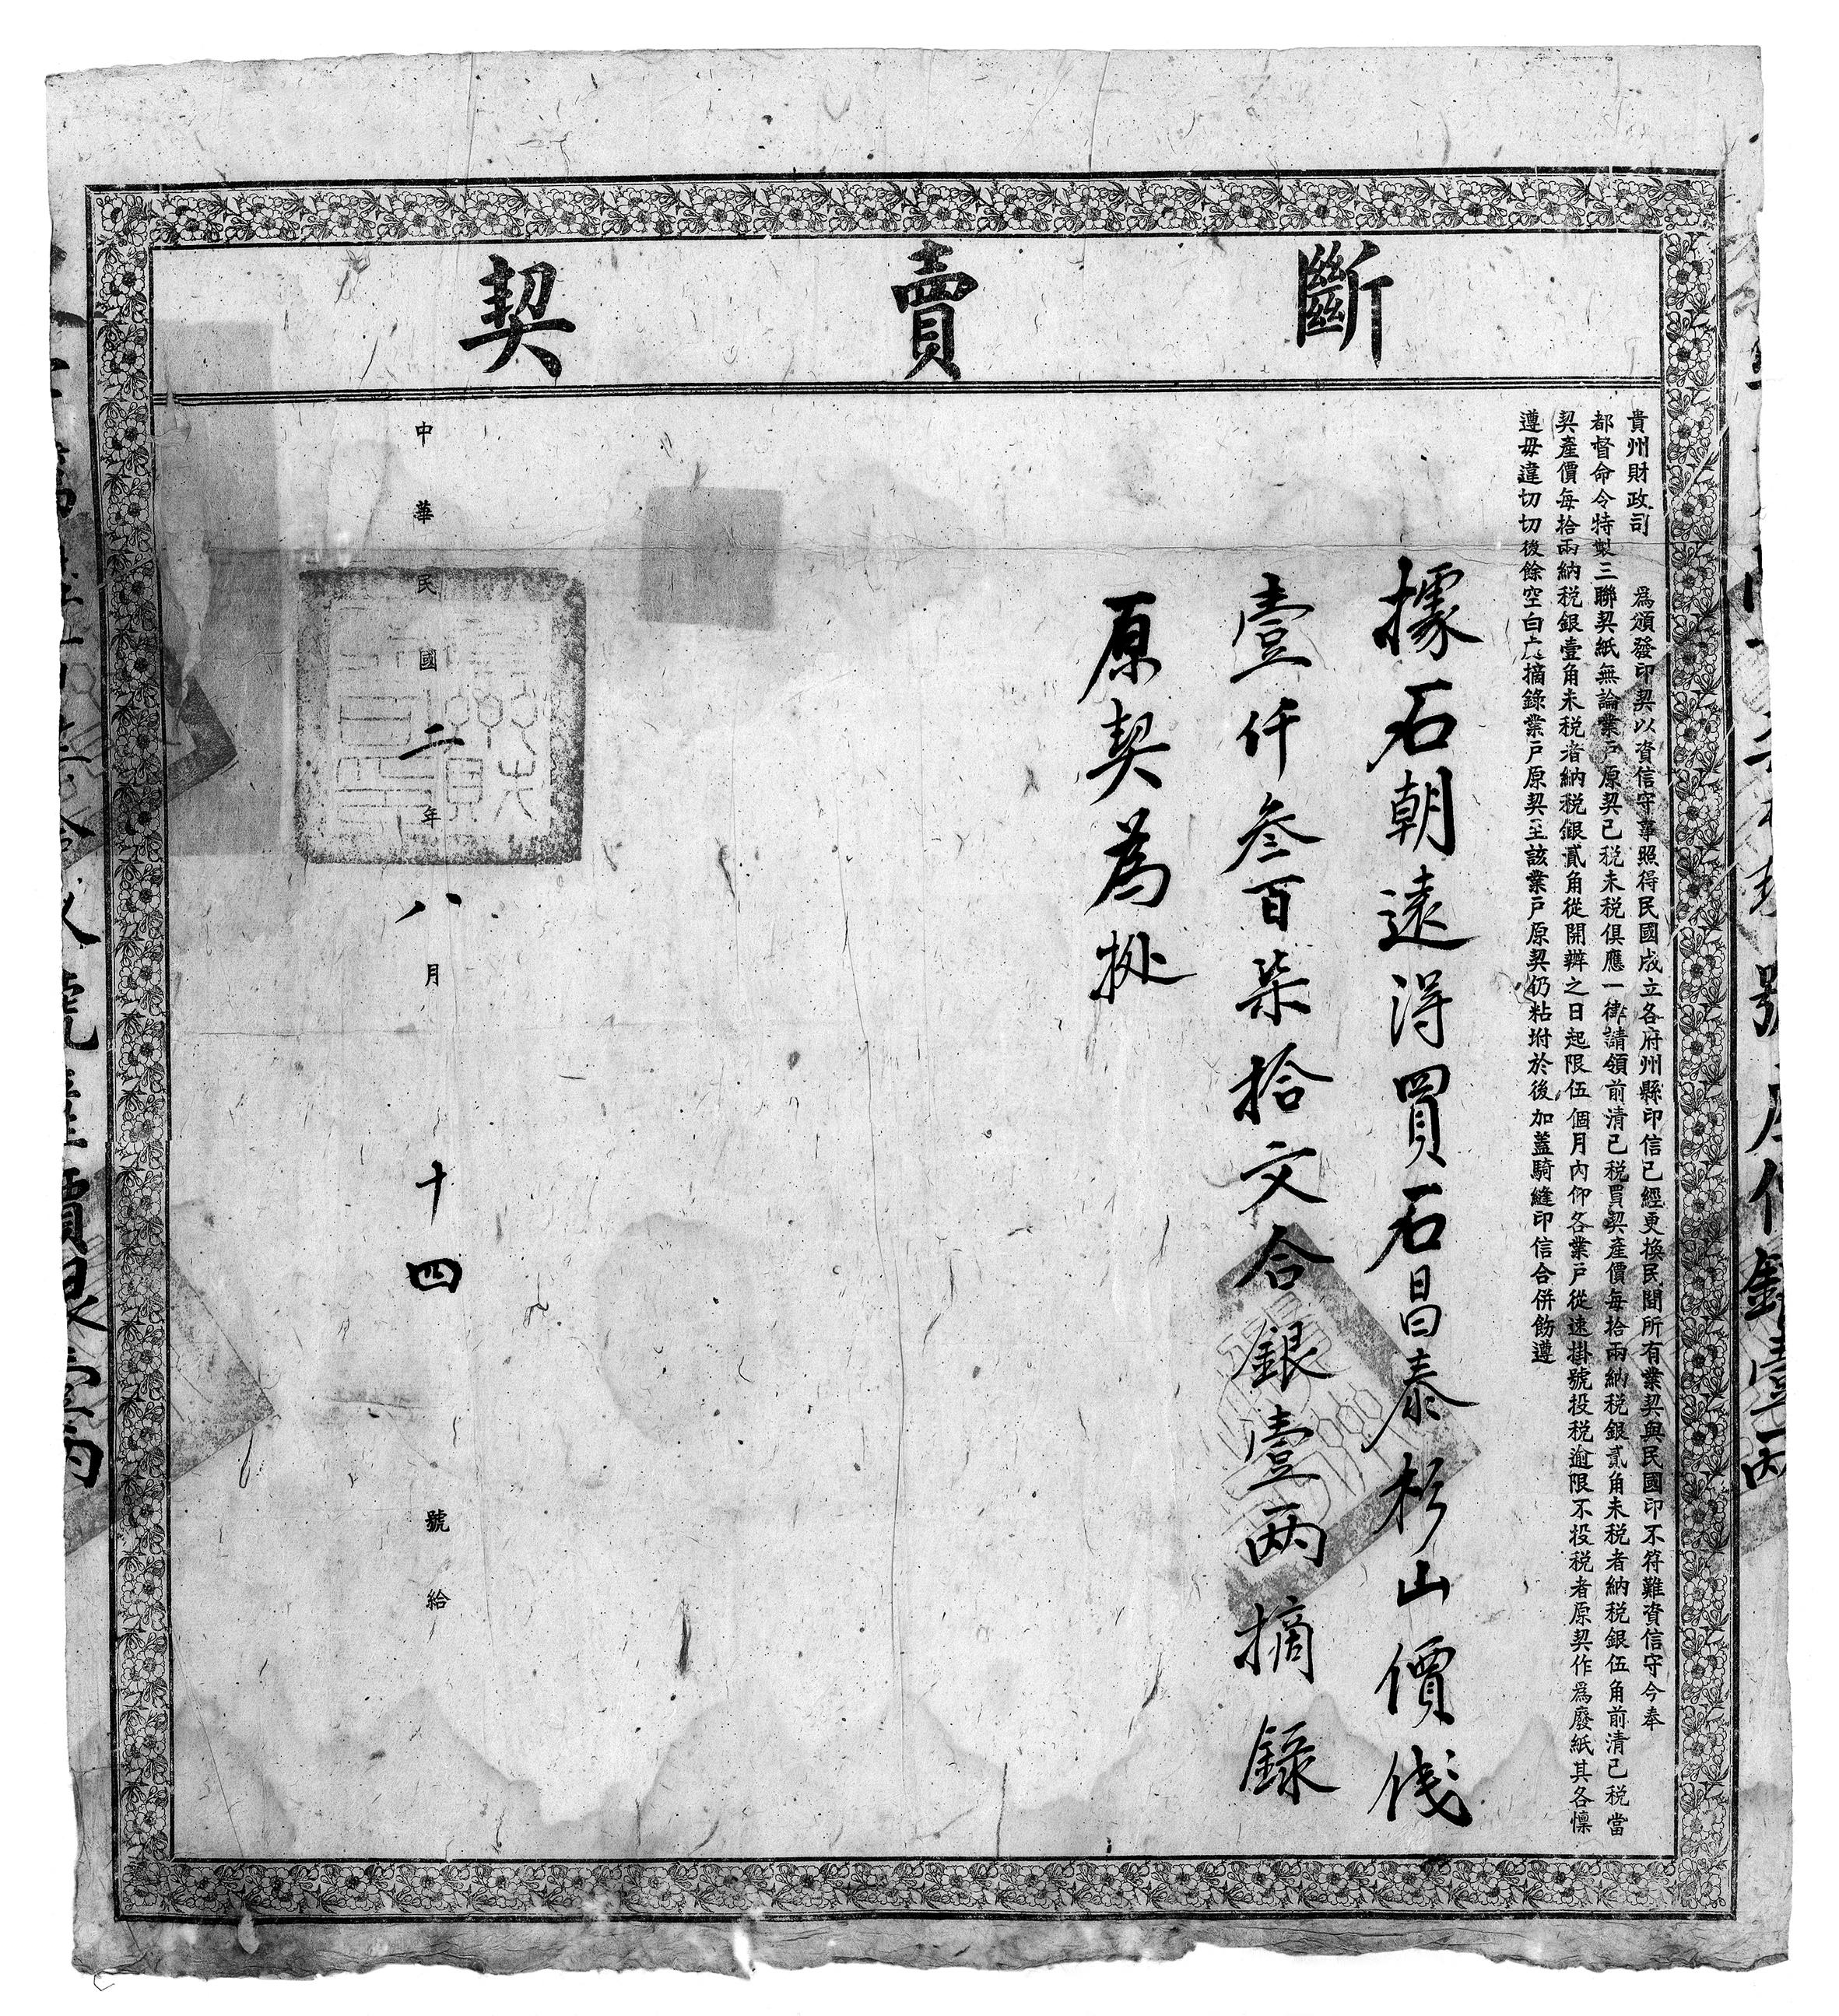 斷賣契
貴州財政司　爲頒發印契以資信守事照得民國成立各府州縣印信已經更換民間所有業契與民國印不符難資信守今奉
都督命令特製三聯契紙無論業戶原契已税未税俱應一律請領前清已税買契產價每拾兩納税銀貳角未税者納税銀伍角前清已税當
契產價每拾兩納税銀壹角未税者納税銀貳角從開辦之日起限伍個月內仰各業戶從速掛號投税逾限不投税者原契作爲廢紙其各懍
遵毋違切切後餘空白處摘錄業戶原契至該業戶原契仍粘坿於後加蓋騎縫印信合併飭遵
據石朝遠得買石昌泰杉山價伐
壹仟叁百柒拾文合銀壹两摘錄
原契為㨿
中華民國二年八月十四號給
號產價銀壹两
號產價銀壹两